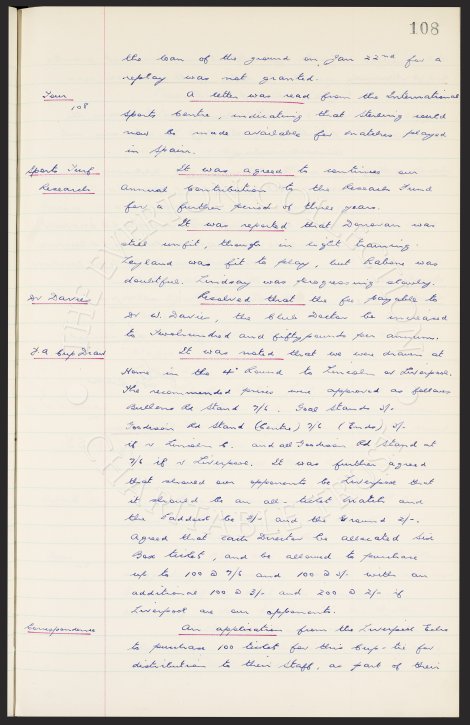 108
the loan of the ground on Jan 22nd for a
replay was not granted.
Tour 108
A letter was read from the International
Sports Centre, indicating that Sterling could
now be made available for matches played
in Spain.
Sports Turf Research
It was agreed to continue our
annual contribution to the Research Fund
for a further period of three years.
It was reported that Donovan was
still unfit, though in light training.
Leyland was fit to play, but Labone was
doubtful. Lindsay was progressing slowly.
Dr Davies
Resolved that the fee payable to
Dr W. Davies, the Club Doctor be increased
to Two hundred and fifty pounds per annum.
F.A. Cup Draw
It was noted that we were drawn at
Home in the 4th Round to Lincoln or Liverpool.
The recommended prices were approved as follows
Bullens Rd Stand 7/6. Goal Stands 5/-
Goodison Rd Stand (Centre) 7/6 (Ends) 5/-
if v Lincoln C. and all Goodison Rd Stand at
7/6 if v Liverpool. It was further agreed
that should our opponents be Liverpool that
it should be an all-ticket match and
the Paddock be 3/- and the Ground 2/-.
Agreed that each Director be allocated six
Box tickets, and be allowed to purchase
up to 100 @ 7/6 and 100 @ 5/- with an
additional 100 @ 3/- and 200 @ 2/- if
Liverpool are our opponents.
Correspondence
An application from the Liverpool Echo
to purchase 100 tickets for this Cup-tie for
distribution to their Staff, as part of their